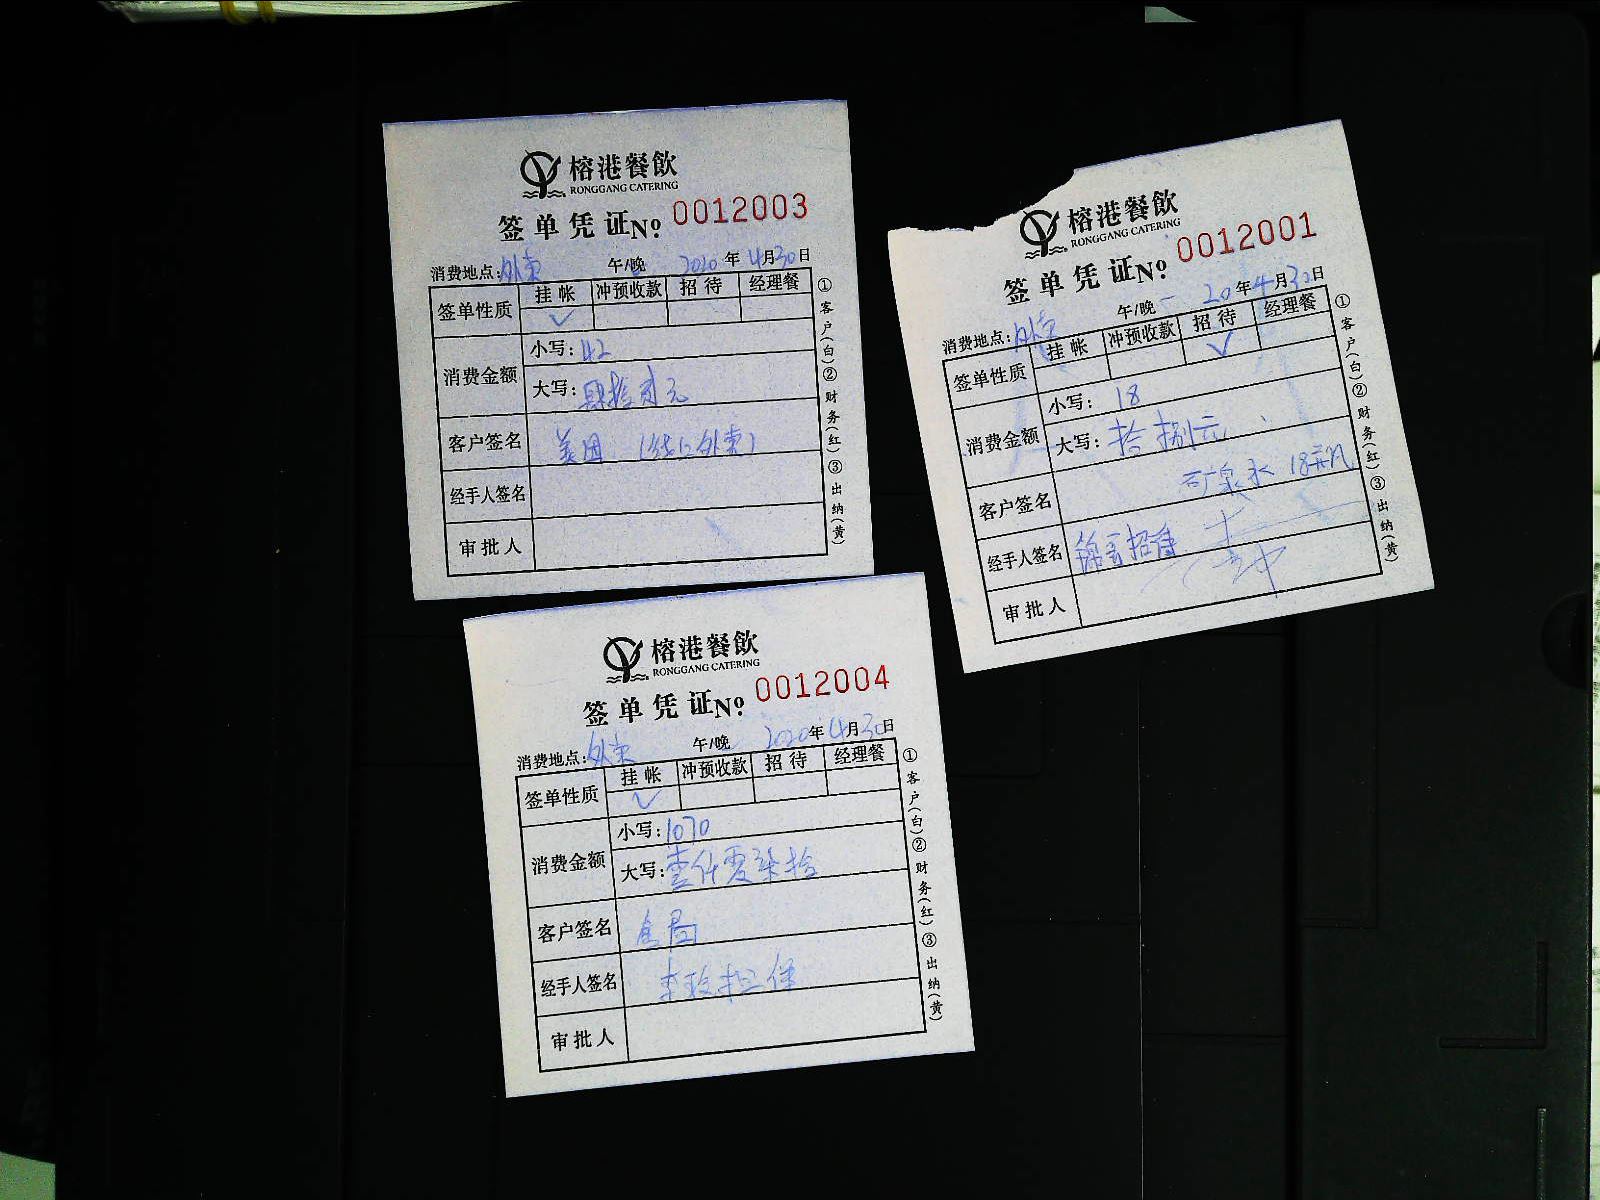 榕港餐飲
RONGGANG CATERING
签单凭证№ 0012003
消费地点:外卖 午/晚 2020年4月30日
签单性质 挂帐 冲预收款 招待 经理餐
✓
消费金额 小写:42
大写:肆拾贰元
客户签名 美团（线上外卖）
经手人签名
审批人
①客户(白)②财务(红)③出纳(黄)
榕港餐飲
RONGGANG CATERING
签单凭证№ 0012001
消费地点:外卖 午/晚 20年4月30日
签单性质 挂帐 冲预收款 招待 经理餐
✓
消费金额 小写:18
大写:拾捌元
矿泉水 18元/
客户签名
经手人签名 招待
审批人
①客户(白)②财务(红)③出纳(黄)
榕港餐飲
RONGGANG CATERING
签单凭证№ 0012004
消费地点:外卖 午/晚 2020年4月30日
签单性质 挂帐 冲预收款 招待 经理餐
✓
消费金额 小写:1070
大写:壹仟零柒拾
客户签名
经手人签名 担保
审批人
①客户(白)②财务(红)③出纳(黄)